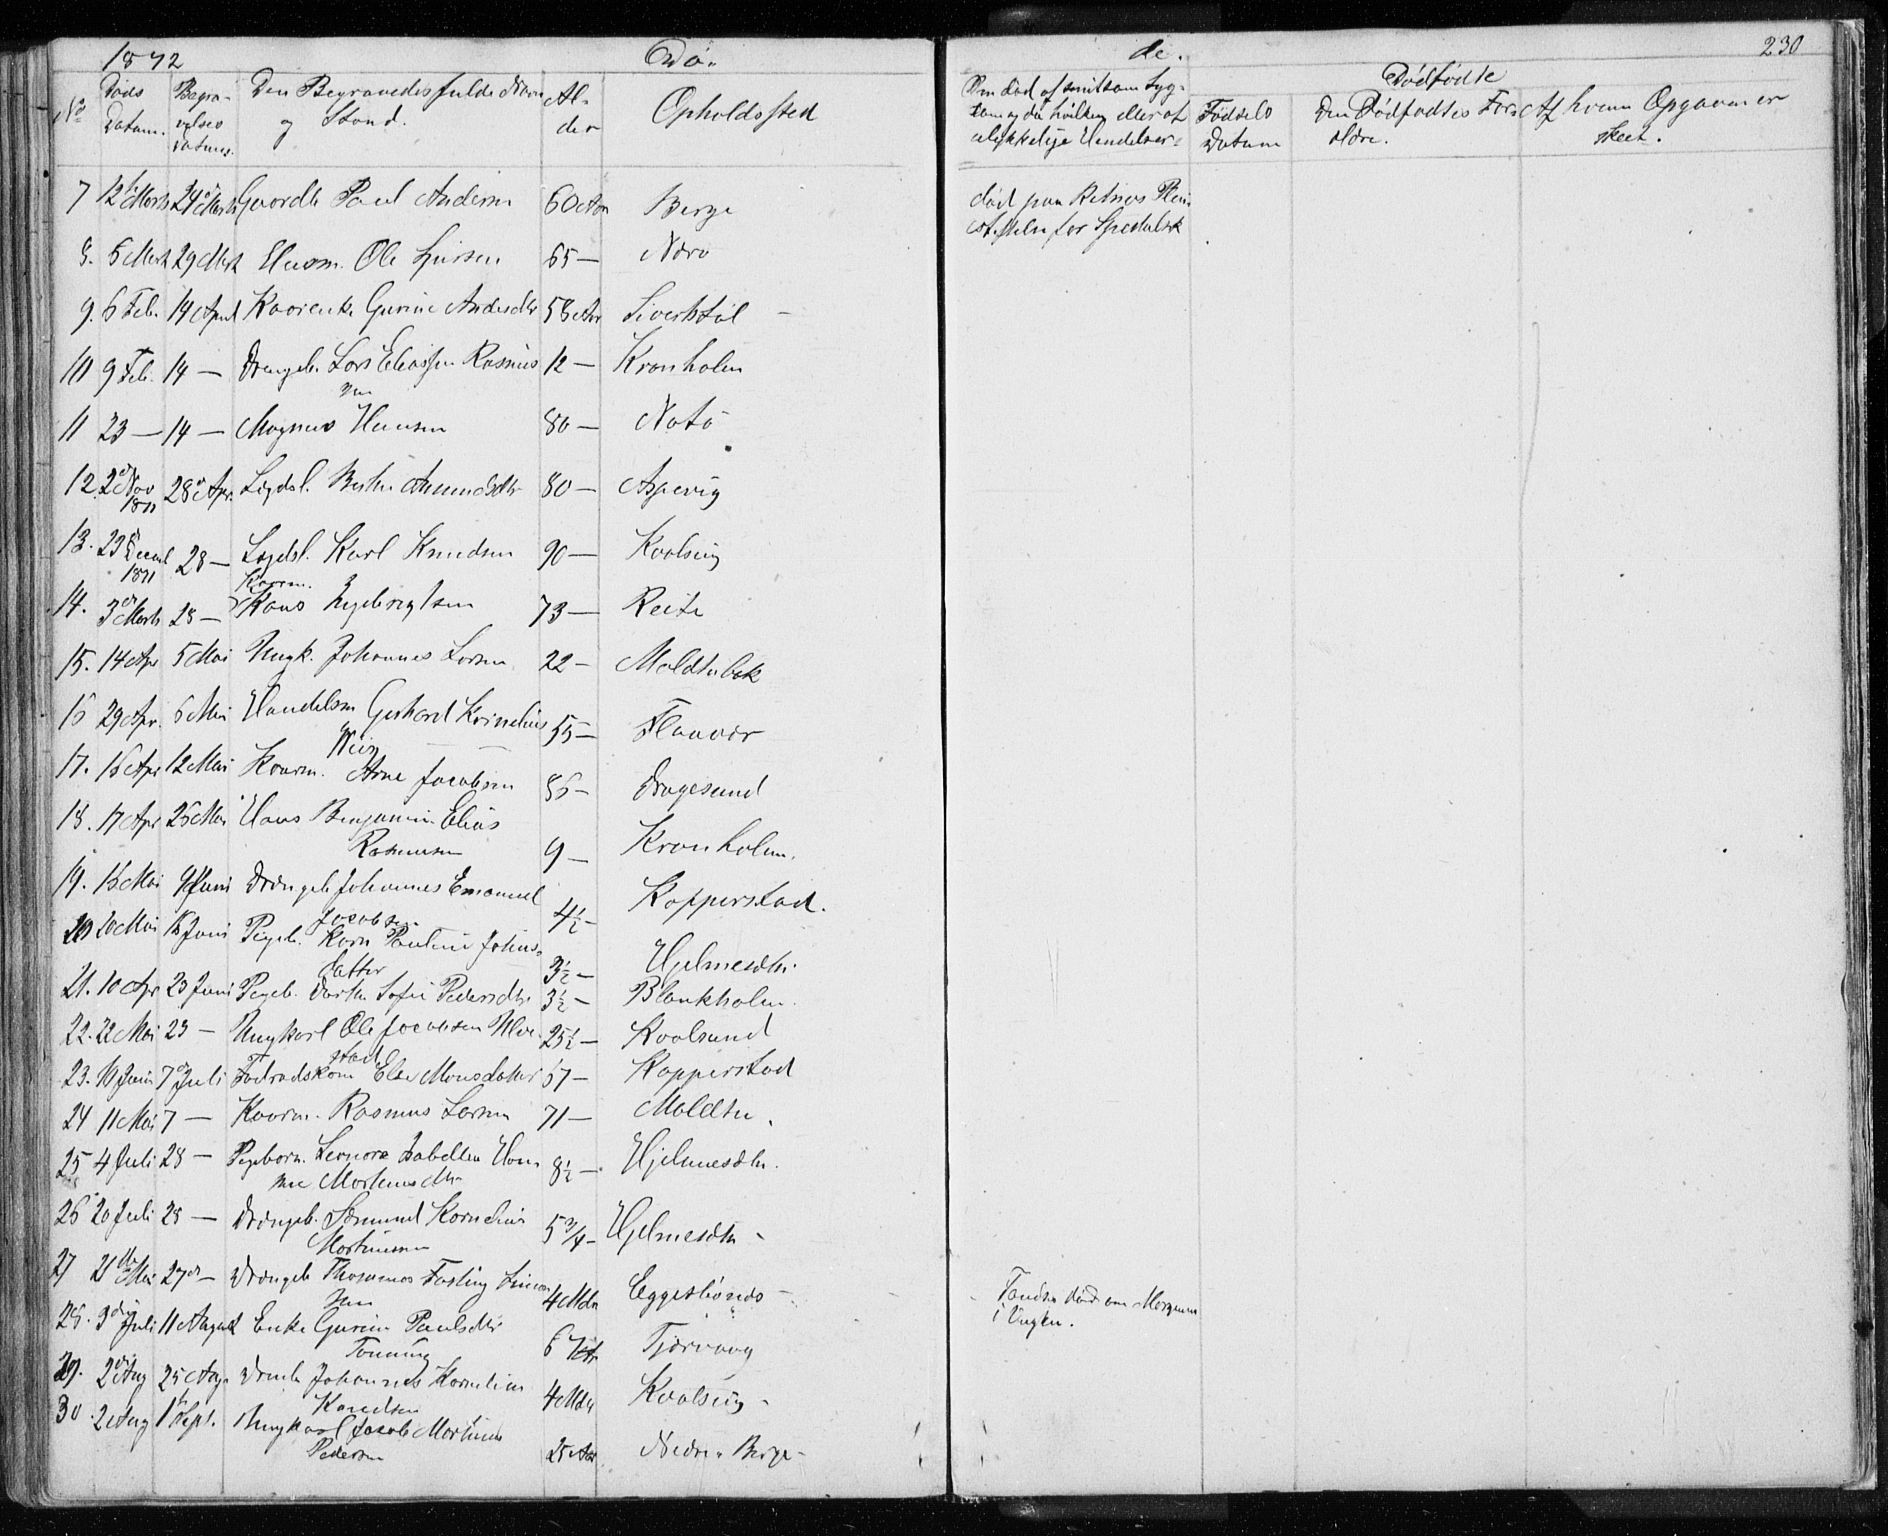 1872 Dø- de. 230
Dødfødte
No Døds Datum. Begravelses Datum. Den Begravedes fulde Navn og Stand. Alder Opholdssted Om død af smitsom Sygdom og da hvilken eller af ulykkelige Hændelser. Fødsels Datum Den Dødfødtes Forældre. Af hvem Opgaven er skeet.
7 12 Marts 24 Marts Paul Andersen 60 Aar Berge død paa Reknes Pleiestiftelse for Spedalsk
8. 5 Marts 29 Marts Husm. Ole 65 — Nærø
9. 6 Feb. 14 April Gurine Andersdtr 58 Aar Sivertstøl
10 9 Feb. 14 — Drengeb. Lars Eliassen Rasmussen 12 — Kronholm
11 23 — 14 — Magnus Hansen 80 — Notø
12. 2 Nov 1871 28 Apr. Lægdsl. Berthe Amundsdtr 80 — Aspevig
13. 23 Decemb 1871 28 — Lægdsl. Karl Knudsen 90 — Kvalsvig
14. 3 Marts 28 — Kaarm. Hans Ingebrigtsen 73 — Reite
15. 14 Apr 5 Mai Ungk. Johannes Larsen 22 — Moldtubak
16 29 Apr. 6 Mai Handelsm Gerhard Kornelius
55 — Flaavær
17. 16 Apr 12 Mai Kaarm. Arne Jacobsen 86 — Dragesund
18. 17 Apr 26 Mai Hans Benjamin Elias
Rasmussen 9 — Kronholm.
19. 16 Mai 9 Juni Drengeb Johannes Emanuel
Jacobsen 4½ — Kopperstad.
20 20 Mai 16 Juni Pigeb. Karn Pauline Johans-
datter 3½ — Hjelmesæth.
21. 10 Apr 23 Juni Pigeb. Dorthe Sofie Pedersdtr 3½ — Blankholm.
22. 22 Mai 23 — Ungkarl Ole Jacobsen Ulve-
stad 25½ — Kvalsund
23. 16 Juni 7 Juli Føderaadskone Else Monsdatter 67 — Kopperstad
24 11 Mai 7 — Kaarm. Rasmus Larsen 71 — Moldtu.
25 4 Juli 28 — Pigebarn. Leonora Isabella Han-
ne Martinusdtr 8½ — Hjelmesæth.
26 20 Juli 28 — Drengeb. Samuel Kornelius
Martinussen 5 3/4 — Hjelmesæth
27 21 Mai 27 — Drengeb Thommas Fasting
4 Mdr Eggesbønæs Funden død om Morgenen
i Vuggen.
28. 3 Juli 11 August Enke Gurine Paulsdtr
67 Aar Tjørvaag
29. 2 Aug 25 Aug. Drengeb Johannes Kornelius
Knudsen 4 Mdr Kvalsvig
30. 2 Aug 1 Sept. Ungkarl Jacob Martinus
Pedersen 25 Aar Nedre Berge